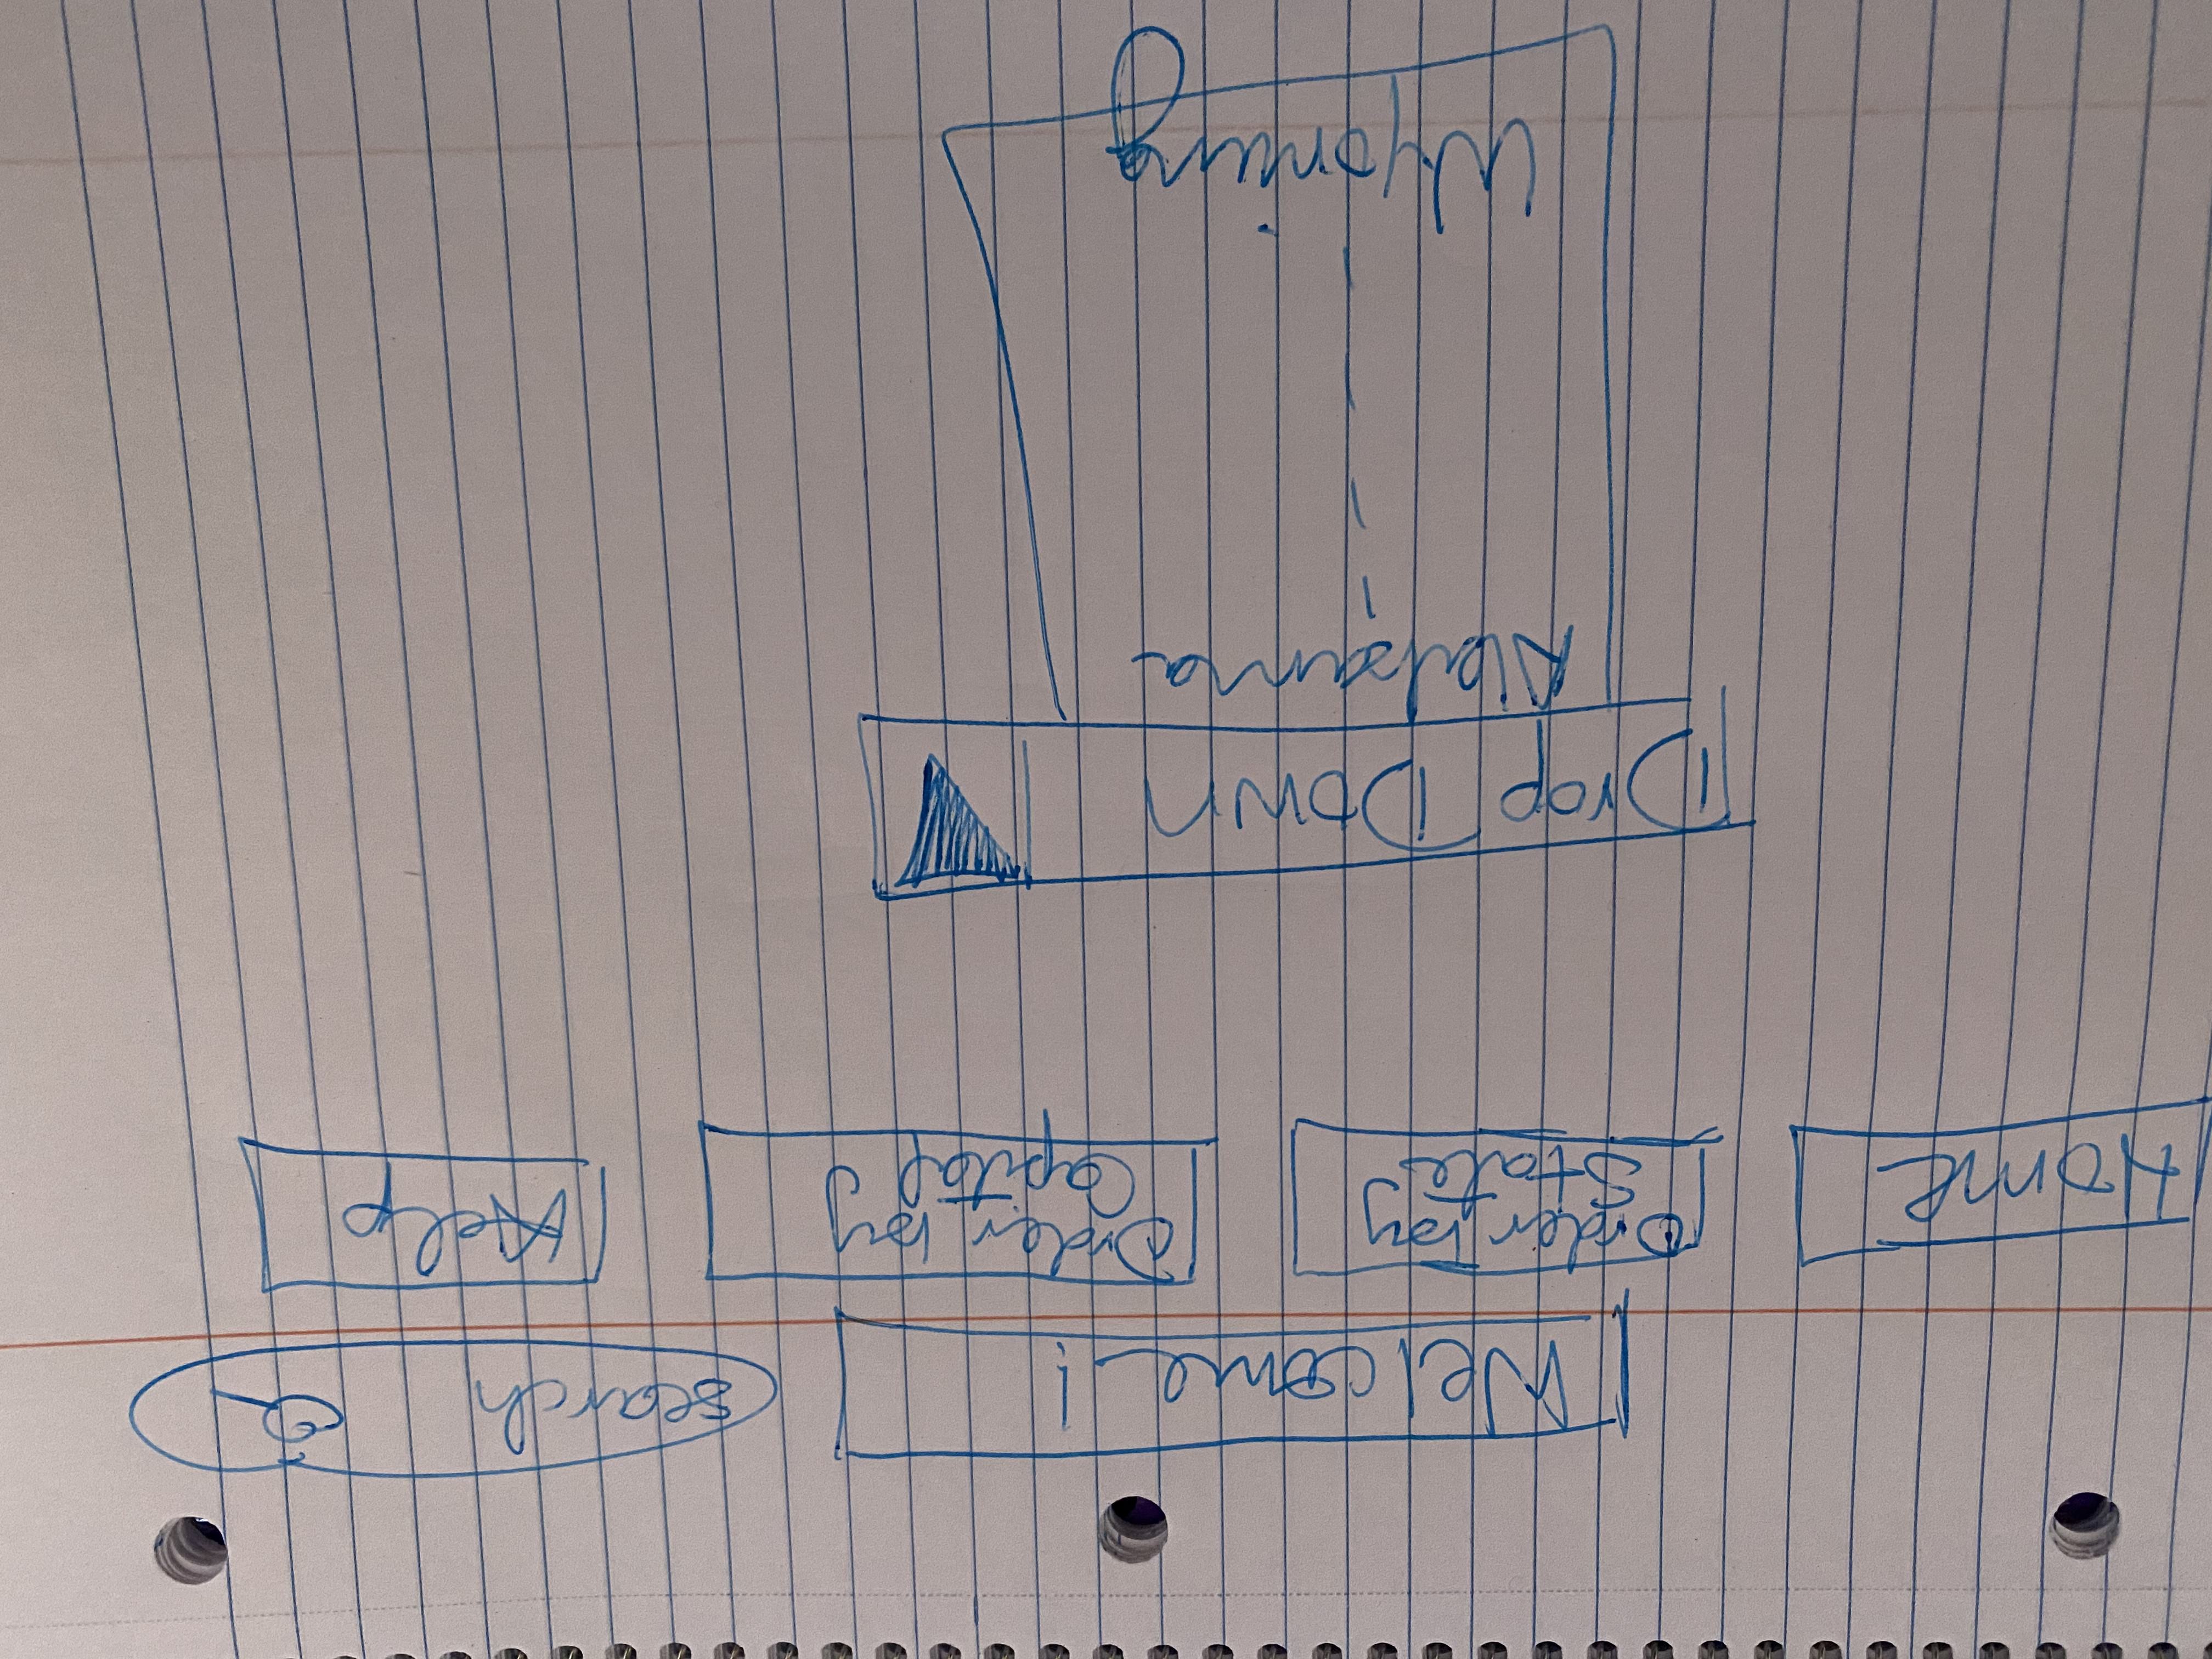 Welcome!
search
Home
Order by
State
Order by
Capital
Help
Drop Down
Alabama
Wyoming